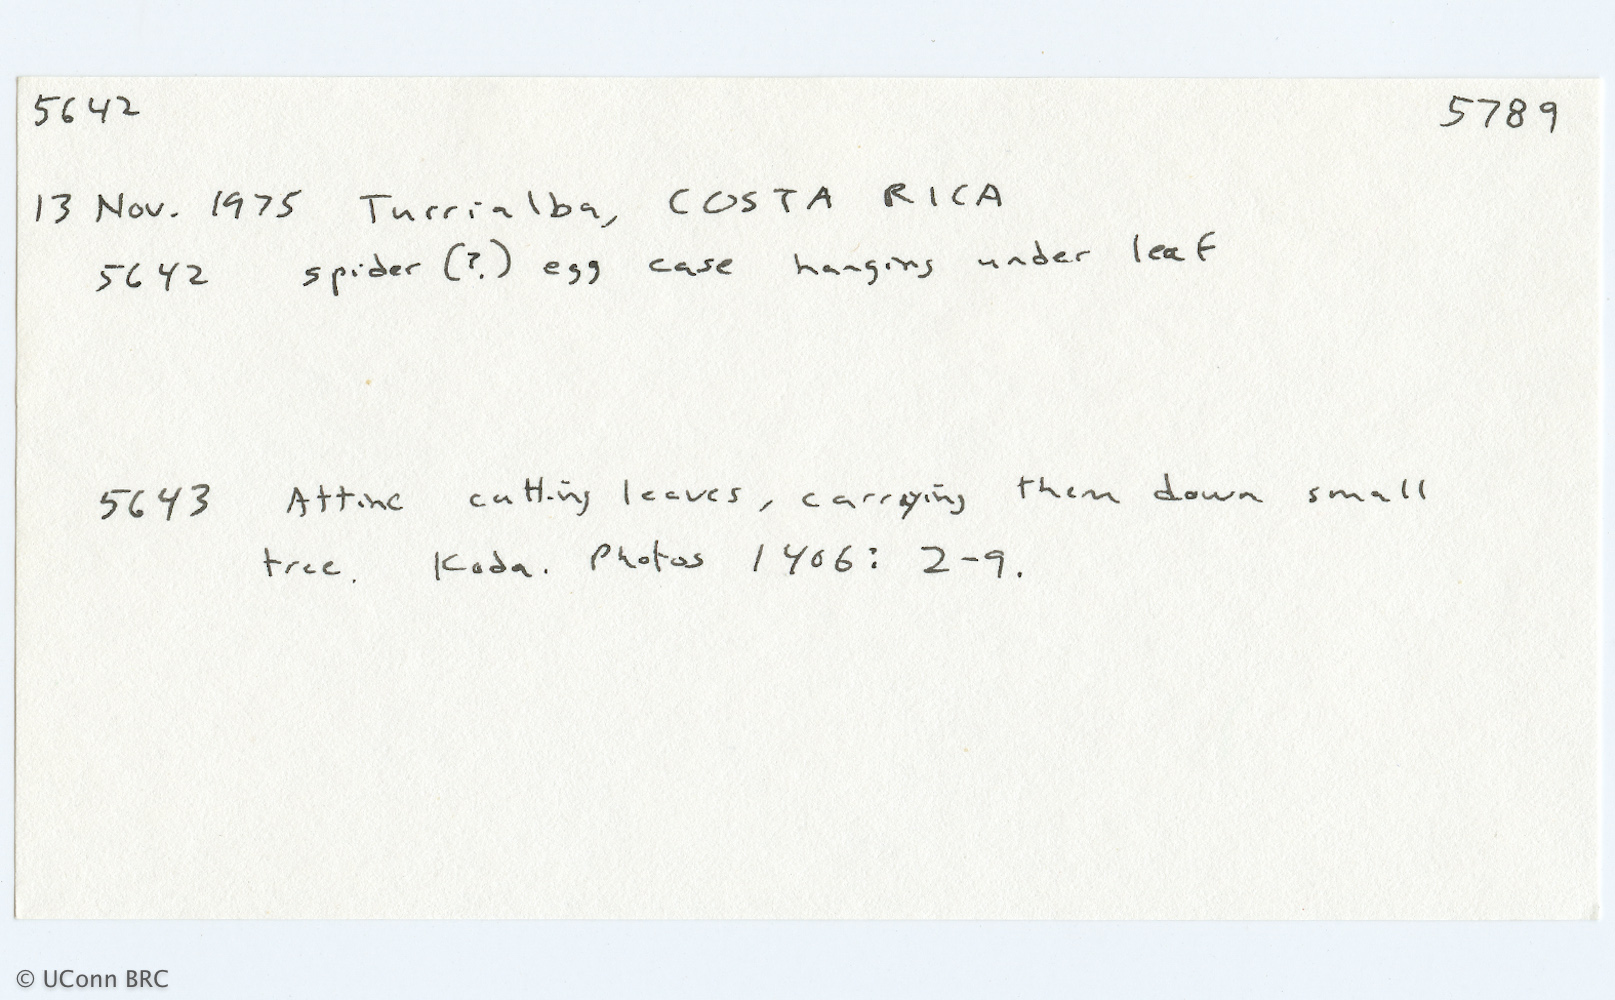 5642 5789
13 Nov. 1975 Turrialba, COSTA RICA
5642 spider (?) egg case hanging under leaf
5643 Attine cutting leaves, carrying them down small
tree. Koda. Photos 1406: 2-9.
© UConn BRC